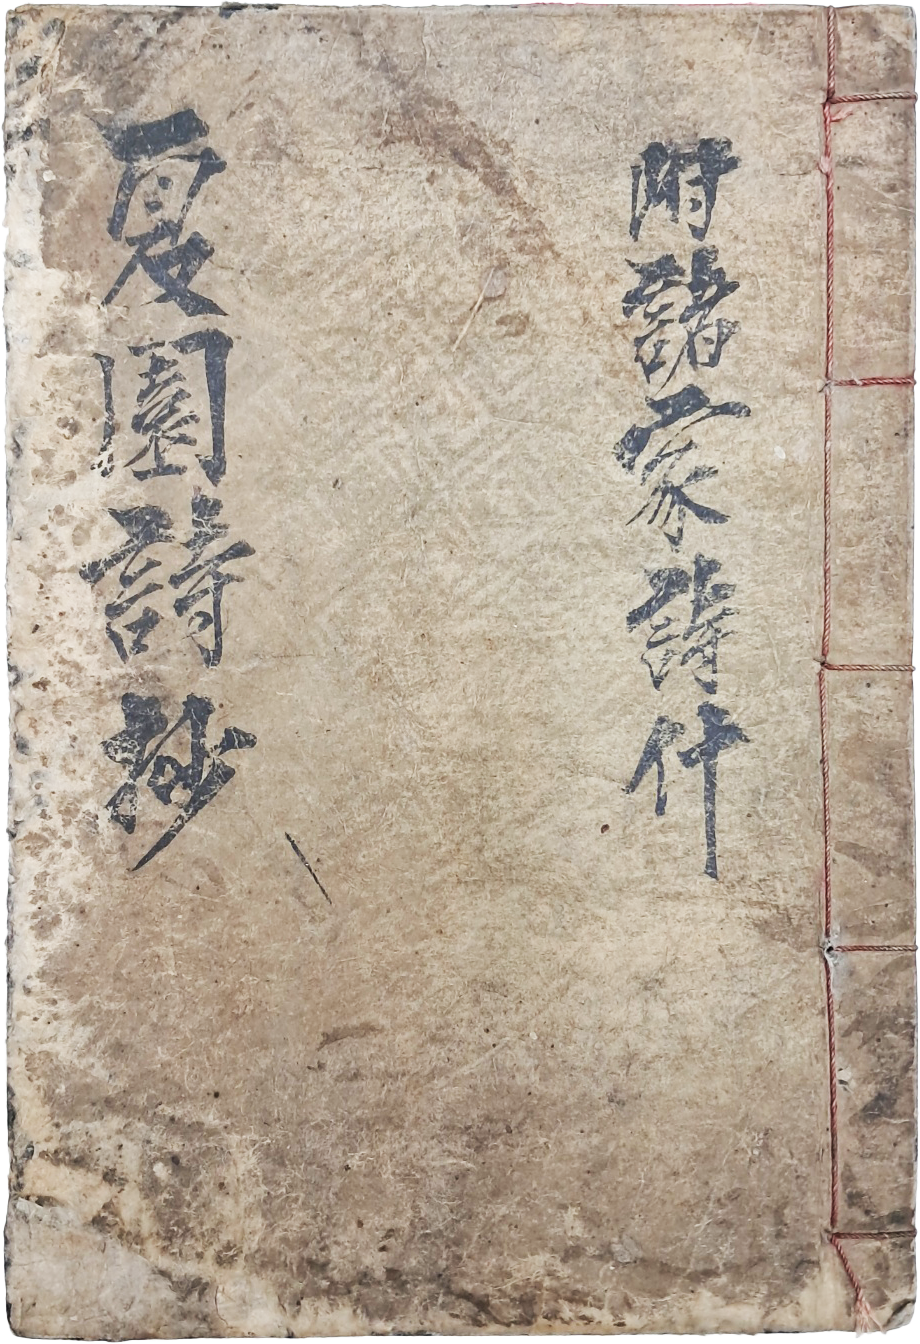 附諸家詩什
夏園詩抄